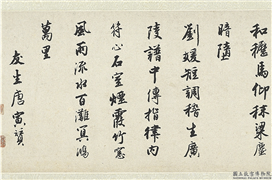 和櫪馬仰秣梁塵
暗墮
劉媛短調稽生廣
陵譜中傳指律內
符心石室煙霞竹窓
風雨流水百灘冥鴻
萬里
友生唐寅贊
國立故宮博物院